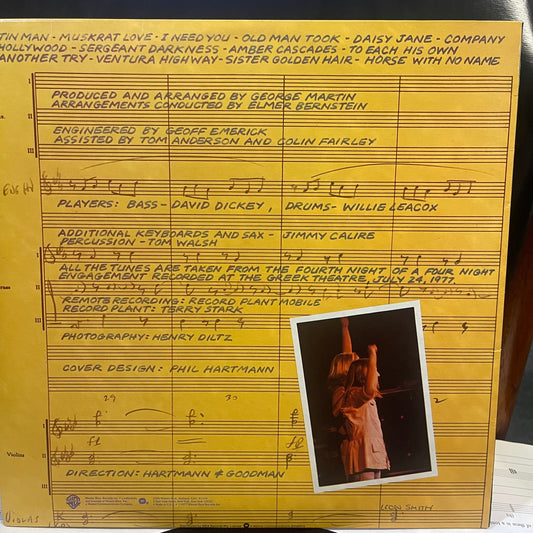 TIN MAN - MUSKRAT LOVE - I NEED YOU - OLD MAN TOOK - DAISY JANE - COMPANY
HOLLYWOOD - SERGEANT DARKNESS - AMBER CASCADES - TO EACH HIS OWN
ANOTHER TRY - VENTURA HIGHWAY - SISTER GOLDEN HAIR - HORSE WITH NO NAME
I
II
III
PRODUCED AND ARRANGED BY GEORGE MARTIN
ARRANGEMENTS CONDUCTED BY ELMER BERNSTEIN
ENGINEERED BY GEOFF EMERICK
ASSISTED BY TOM ANDERSON AND COLIN FAIRLEY
PLAYERS: BASS - DAVID DICKEY, DRUMS - WILLIE LEACOX
ADDITIONAL KEYBOARDS AND SAX - JIMMY CALIRE
PERCUSSION - TOM WALSH
I
ALL THE TUNES ARE TAKEN FROM THE FOURTH NIGHT OF A FOUR NIGHT
ENGAGEMENT RECORDED AT THE GREEK THEATRE, JULY 24, 1977.
II
REMOTE RECORDING: RECORD PLANT MOBILE
RECORD PLANT: TERRY STARK
III
PHOTOGRAPHY: HENRY DILTZ
COVER DESIGN: PHIL HARTMANN
29 30
I
Violins
II
DIRECTION: HARTMANN & GOODMAN
VIOLAS
LEON SMITH